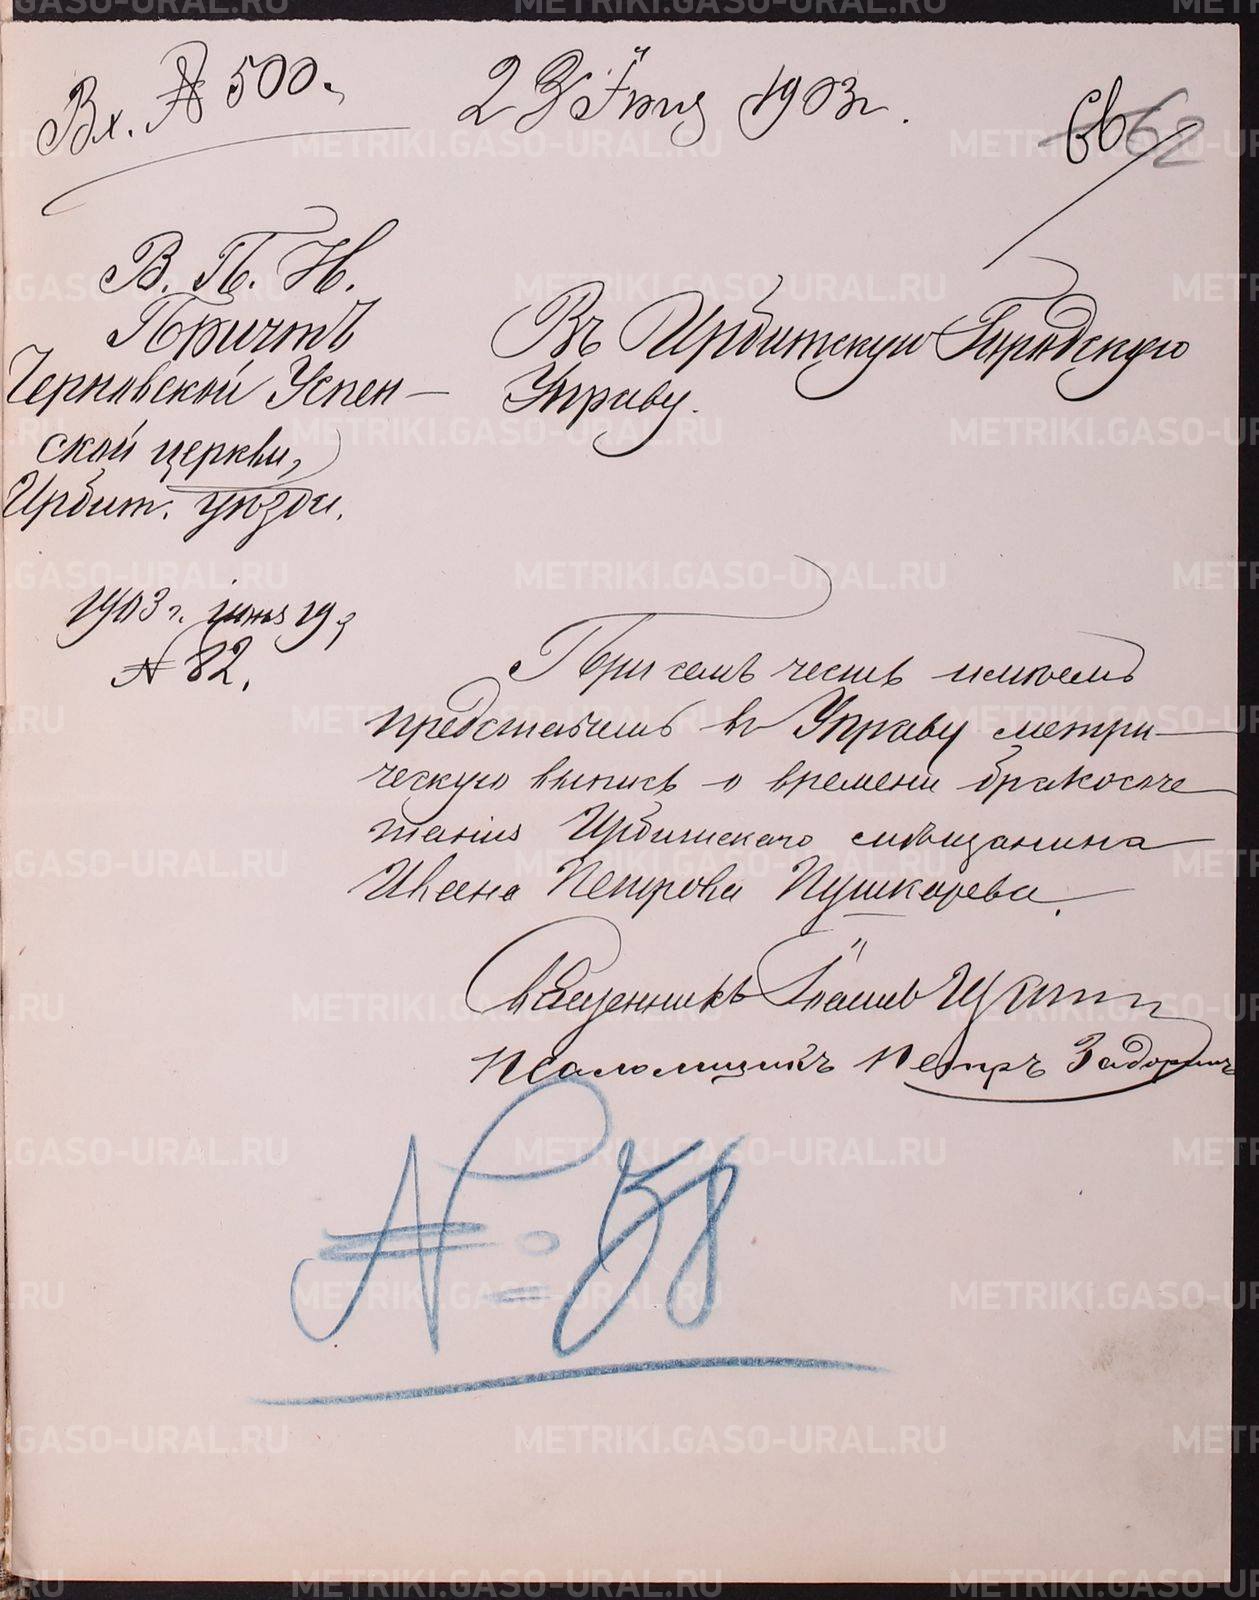 Вх. № 500.
23 Іюня 1903 г.
66
62
В. П. И.
Причтъ
Черновской Успен-
ской церкви,
Ирбит. уѣзда.
1903 г. іюня 19 д
№ 82.
Въ Ирбитскую Городскую
Управу.
При семъ честь имѣемъ
представить въ Управу метри-
ческую выпись о времени бракосоче
танія Ирбитскаго мѣщанина
Ивана Петрова Пушкарева.
Священникъ
Псаломщикъ Петръ
№ 58
METRIKI.GASO-URAL.RU